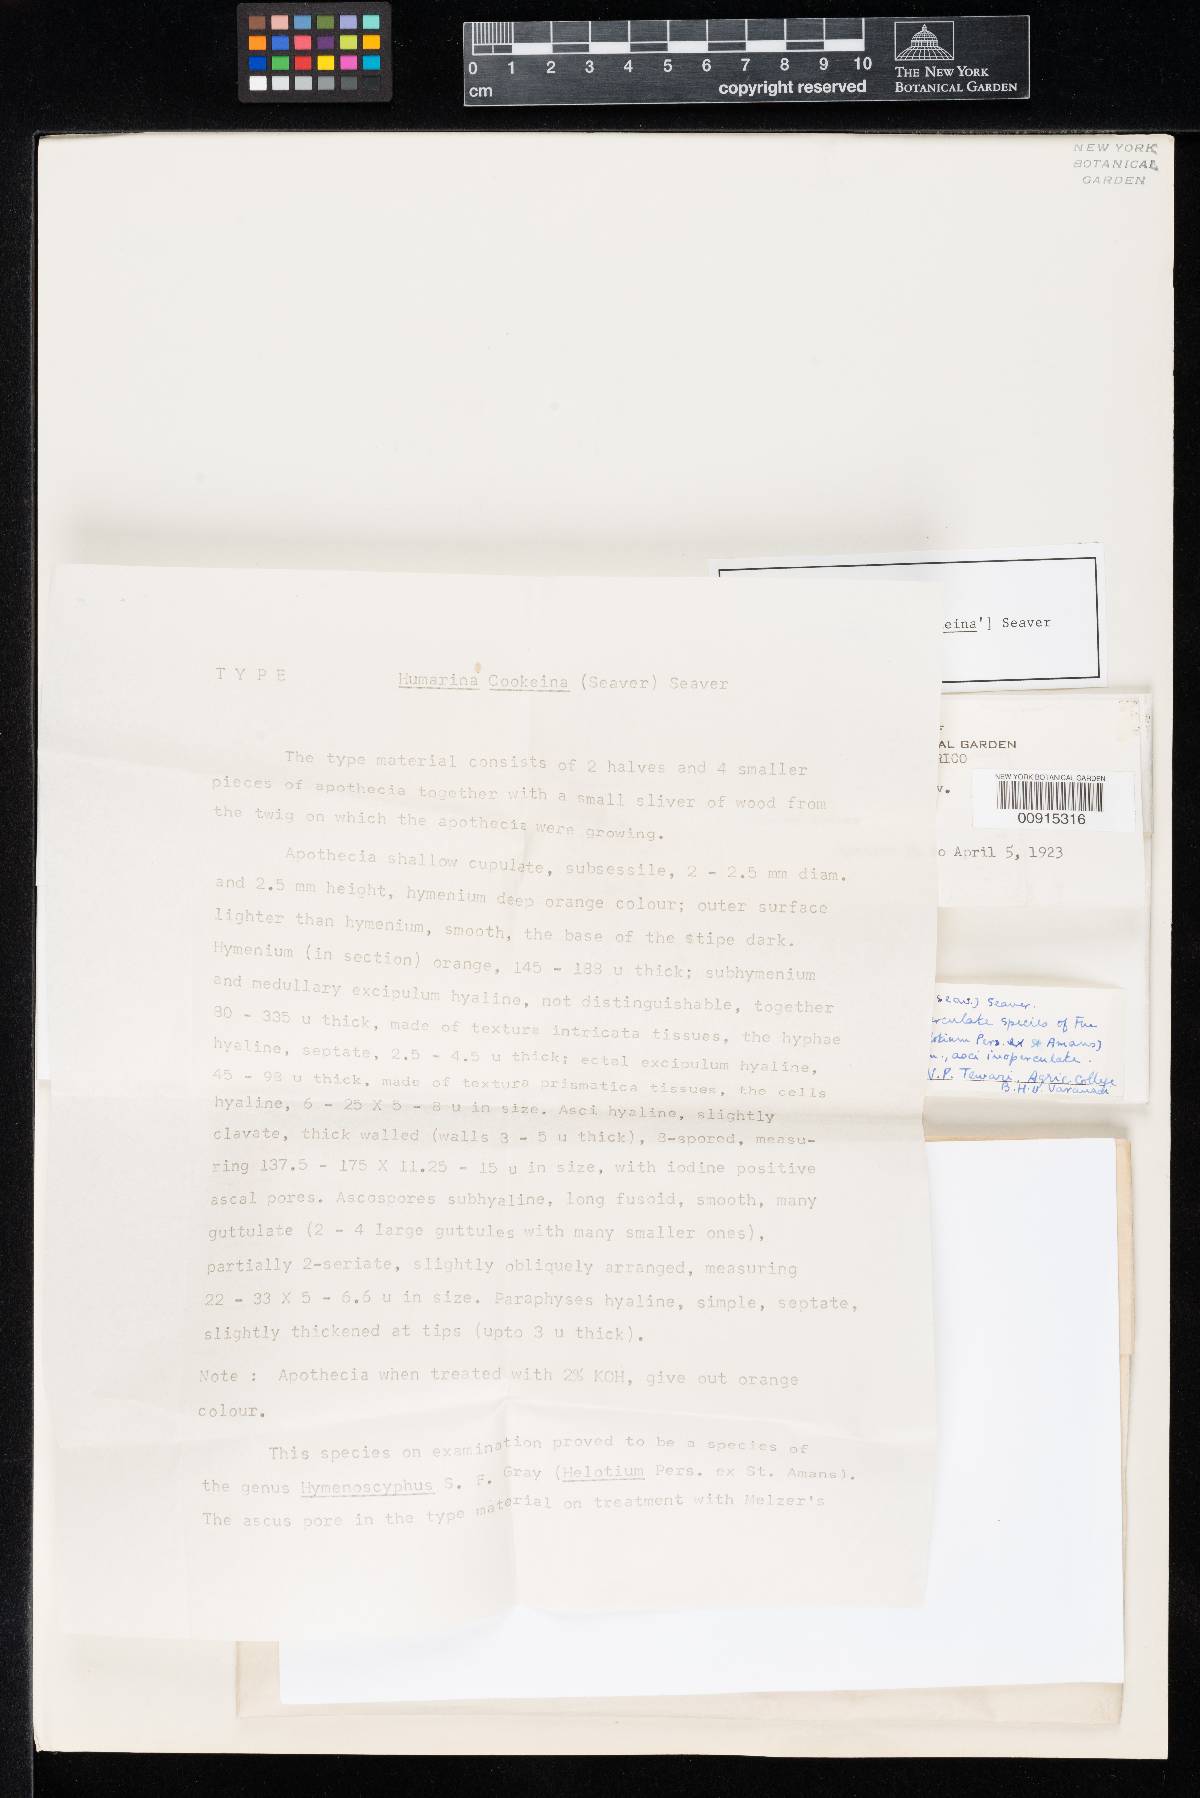 0 1 2 3 4 5 6 7 8 9 10
cm
copyright reserved
THE NEW YORK
BOTANICAL GARDEN
NEW YORK
BOTANICAL
GARDEN
eina'] Seaver
AL GARDEN
RICO
v.
NEW YORK BOTANICAL GARDEN
00915316
o April 5, 1923
Seav.) Seaver.
erculate species of Fun
lotium Pers. ex St Amans)
m., asci inoperculate.
V.P. Tewari, Agric. College
B.H.U. Varanasi
T Y P E
Humarina Cookeina (Seaver) Seaver
The type material consists of 2 halves and 4 smaller
pieces of apothecia together with a small sliver of wood from
the twig on which the apothecia were growing.
Apothecia shallow cupulate, subsessile, 2 - 2.5 mm diam.
and 2.5 mm height, hymenium deep orange colour; outer surface
lighter than hymenium, smooth, the base of the stipe dark.
Hymenium (in section) orange, 145 - 188 u thick; subhymenium
and medullary excipulum hyaline, not distinguishable, together
80 - 335 u thick, made of textura intricata tissues, the hyphae
hyaline, septate, 2.5 - 4.5 u thick; ectal excipulum hyaline,
45 - 98 u thick, made of textura prismatica tissues, the cells
hyaline, 6 - 25 X 5 - 8 u in size. Asci hyaline, slightly
clavate, thick walled (walls 3 - 5 u thick), 8-spored, measu-
ring 137.5 - 175 X 11.25 - 15 u in size, with iodine positive
ascal pores. Ascospores subhyaline, long fusoid, smooth, many
guttulate (2 - 4 large guttules with many smaller ones),
partially 2-seriate, slightly obliquely arranged, measuring
22 - 33 X 5 - 6.6 u in size. Paraphyses hyaline, simple, septate,
slightly thickened at tips (upto 3 u thick).
Note : Apothecia when treated with 2% KOH, give out orange
colour.
This species on examination proved to be a species of
the genus Hymenoscyphus S. F. Gray (Helotium Pers. ex St. Amans).
The ascus pore in the type material on treatment with Melzer's